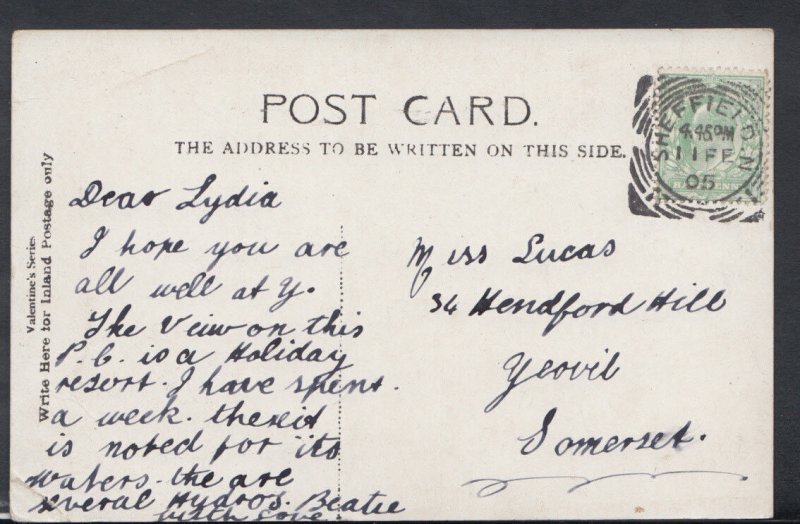 POST CARD.
THE ADDRESS TO BE WRITTEN ON THIS SIDE.
Valentine's Series
Write Here for Inland Postage only
SHEFFIELD
4.45PM
11 FE
05
Dear Lydia
I hope you are
all well at Y.
The Veiw on this
P.C. is a Holiday
resort. I have spent.
a week. there it
is noted for its
waters. the are
several Hydros. Beatie
with love.
Miss Lucas
34 Hendford Hill
Yeovil
Somerset.